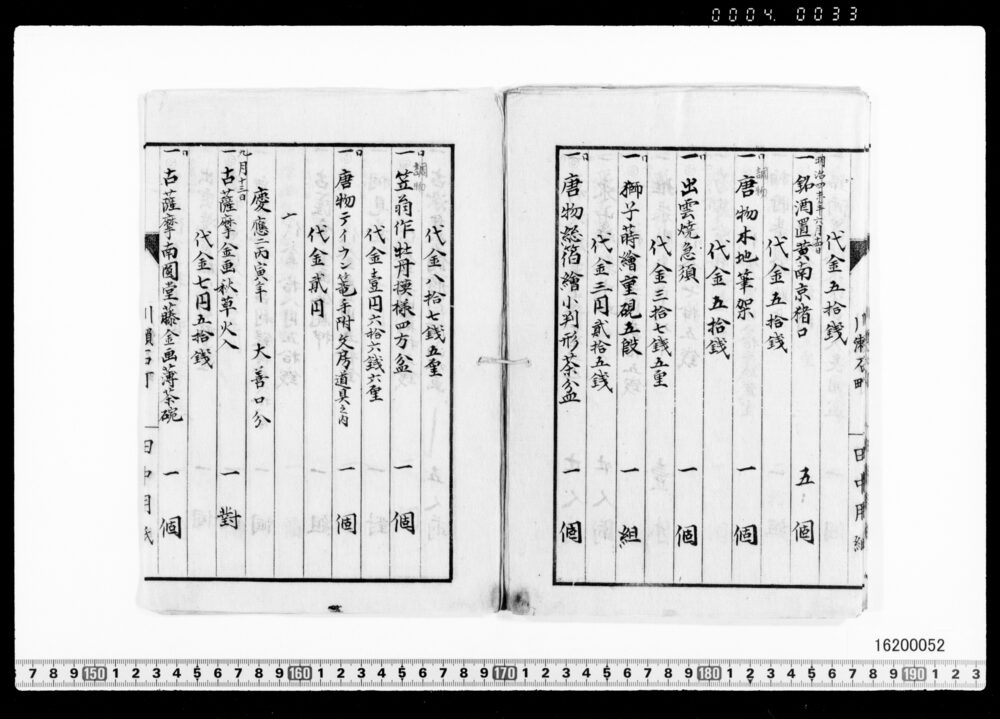 0004 0033
代金五拾銭
一 銘酒置黄南京猪口 五個
代金五拾銭
一 唐物木地筆架 一個
調物
代金五拾銭
一 出雲焼急須 一個
代金三拾七銭五重
一 獅子蒔繪重硯五段 一組
代金三円貳拾五銭
一 唐物総箔繪小判形茶分盆 一個
代金八拾七銭五重
一 笠翁作牡丹摸様四方盆 一個
調物
代金壹円六拾六銭六重
一 唐物テイウン篭手附文房道具之内 一個
代金貳円
慶應二丙寅年 大善口分
九月十三日
一 古薩摩金画秋草火入 一對
代金七円五拾銭
一 古薩摩南園堂藤金画薄茶碗 一個
16200052
7 8 9 150 1 2 3 4 5 6 7 8 9 160 1 2 3 4 5 6 7 8 9 170 1 2 3 4 5 6 7 8 9 180 1 2 3 4 5 6 7 8 9 190 1 2 3